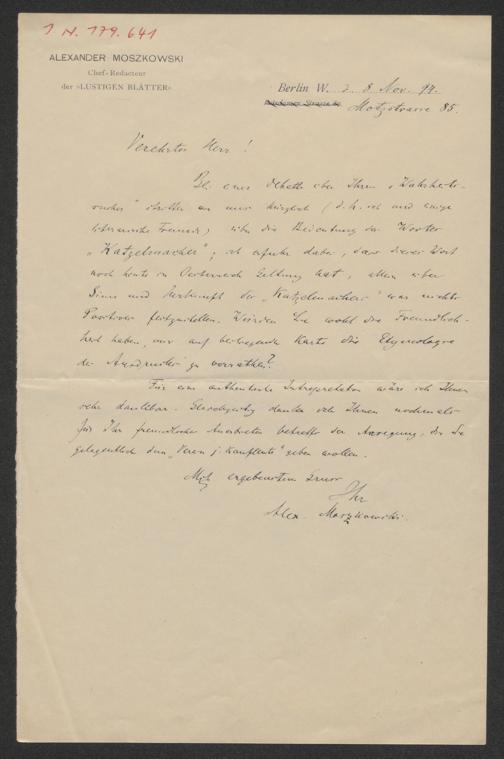 I N. 179.641
ALEXANDER MOSZKOWSKI
Chef-Redacteur
der »LUSTIGEN BLÄTTER«
Berlin W. 8. Nov. 94.
Motzstrasse 85.
Verehrter Herr!
Bei einer Debatte über Ihren „Wahrheits-
sucher" stritten wir uns kürzlich (d. h. ich und einige
literarische Freunde) über die Bedeutung des Wortes
„Katzelmacher"; ich erfuhr dabei, dass dieses Wort
noch heute in Oesterreich Geltung hat, allein über
Sinn und Herkunft der „Katzelmacher" war nichts
Positives festzustellen. Würden Sie wohl die Freundlich-
keit haben, mir auf beiliegender Karte die Etymologie
des Ausdruckes zu verrathen?
Für eine authentische Interpretation wäre ich Ihnen
sehr dankbar. Gleichzeitig danke ich Ihnen nochmals
für Ihr freundliches Anerbieten betreffs der Anregung, die Sie
gelegentlich dem „Verein j. Kaufleute" geben wollen.
Mit ergebenstem Gruss
Ihr
Alex. Moszkowski.